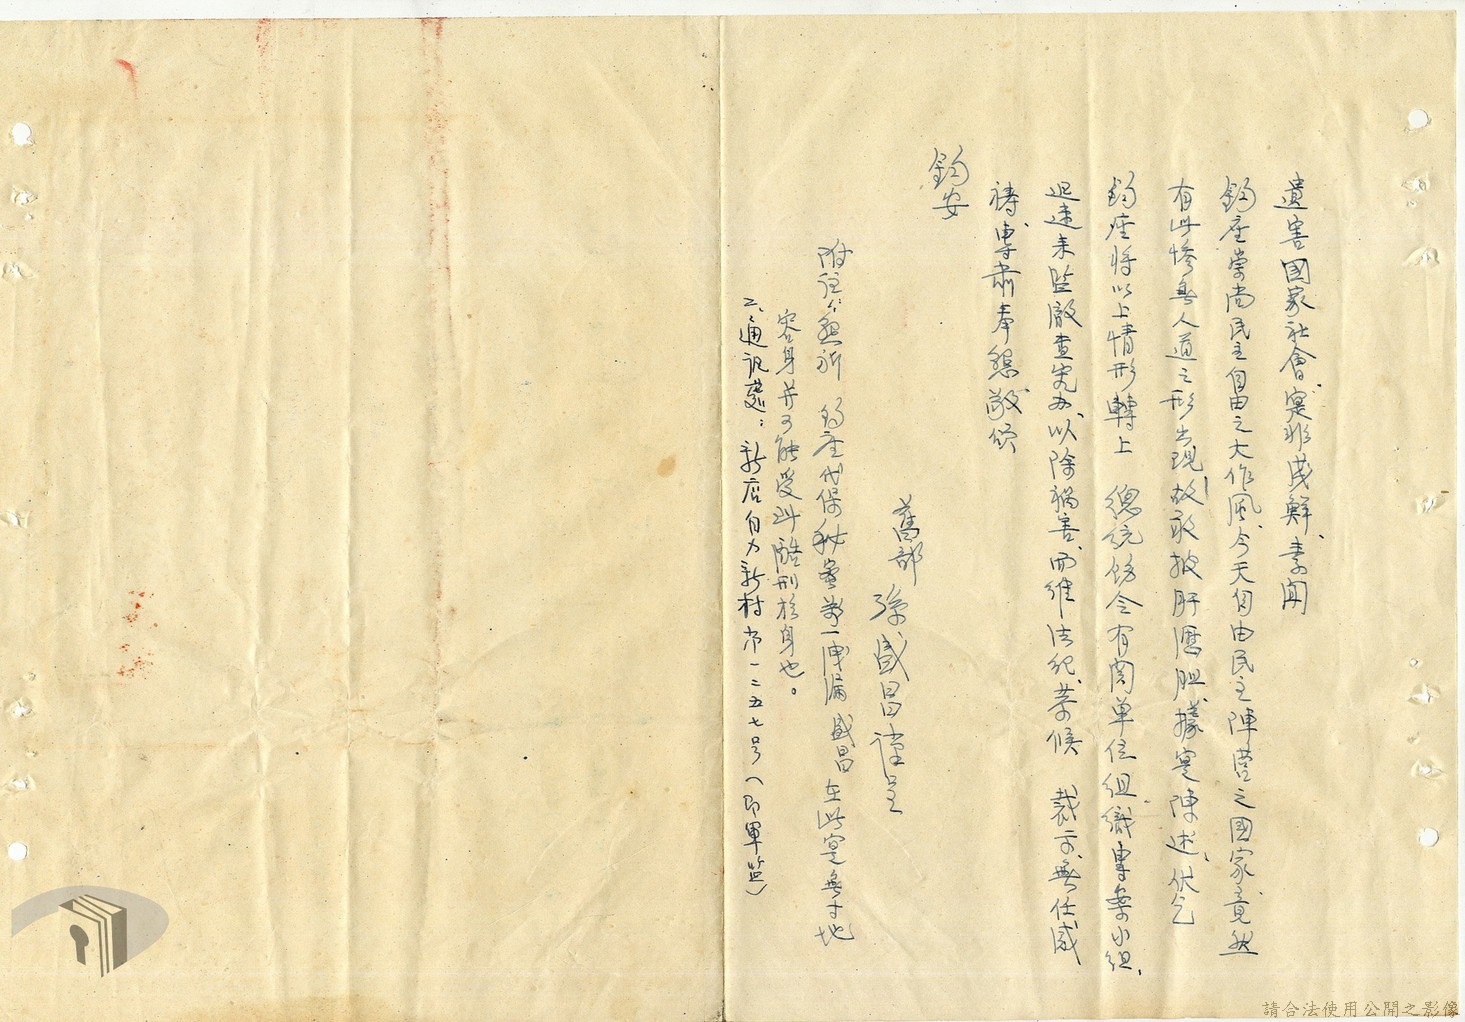 遺害國家社會、實非淺鮮、素聞
鈞座崇尚民主自由之大作風、今天自由民主陣營之國家、竟然
有此慘無人道之形出現、故敢披肝瀝胆、據實陳述、伏乞
鈞座將以上情形轉上 總統飭令有関單位組織專案小組、
迅速來監廠查究办、以除禍害、而維法紀、恭候 裁示、無任感
禱、專肅奉懇、敬頌
鈞安
舊部 孫盛昌謹呈
附註：一、懇祈 鈞座代保秘密、萬一洩漏 盛昌在此實無寸地
容身并可能受到酷刑於身也。
二、通訊處：新店自力新村市一二五七号（即軍監）
請合法使用公開之影像